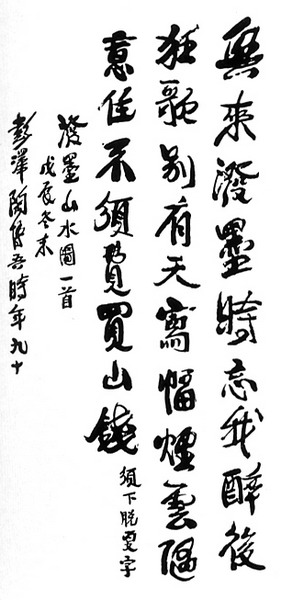 興來潑墨時忘我醉後
狂歌別有天寫幅煙雲隨
意佳不須覓買山錢 須下脫更字
潑墨山水圖一首
戊辰冬末
彭澤陶博吾時年九十